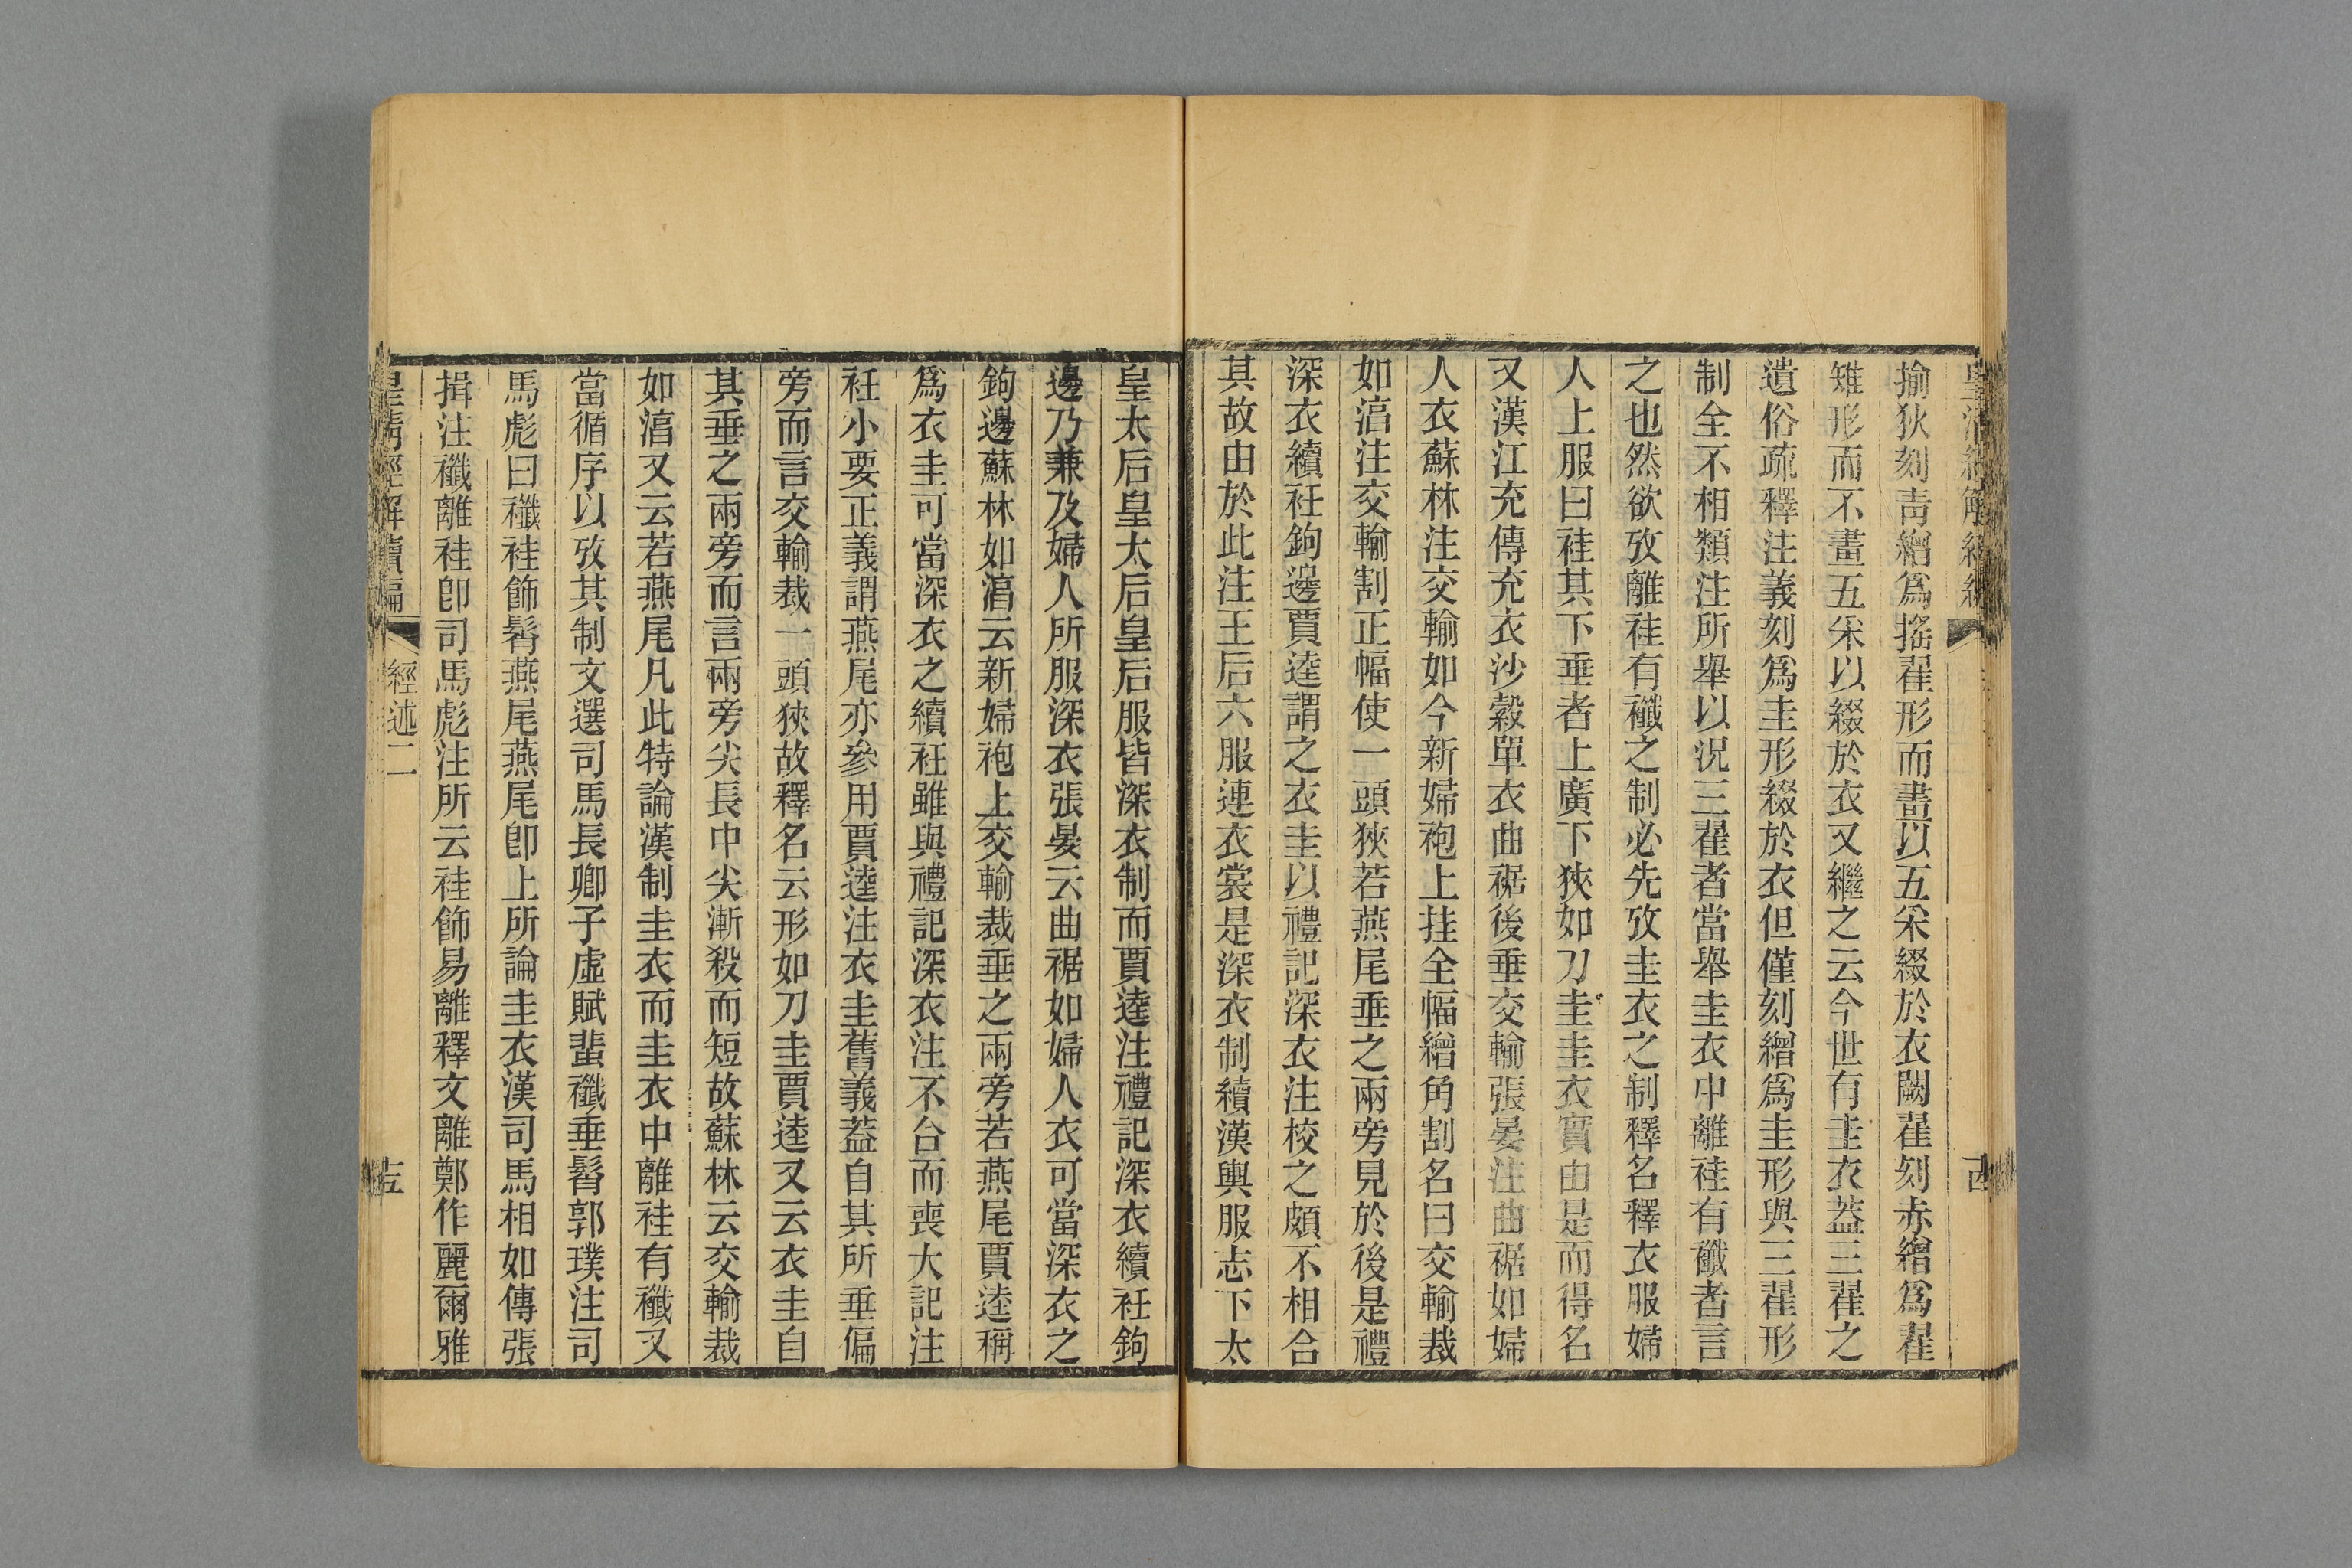 揄狄刻靑繒爲搖翟形而畫以五采綴於衣闕翟刻赤繒爲翟
雉形而不畫五采以綴於衣又繼之云今世有圭衣葢三翟之
遺俗疏釋注義刻爲圭形綴於衣但僅刻繒爲圭形與三翟形
制全不相類注所舉以況三翟者當舉圭衣中離袿有襳者言
之也然欲攷離袿有襳之制必先攷圭衣之制釋名釋衣服婦
人上服曰袿其下垂者上廣下狹如刀圭圭衣實由是而得名
又漢江充傳充衣沙縠單衣曲裾後垂交輸張晏注曲裾如婦
人衣蘇林注交輸如今新婦袍上挂全幅繒角割名曰交輸裁
如湻注交輸割正幅使一頭狹若燕尾垂之兩旁見於後是禮
深衣續衽鉤邊賈逵謂之衣圭以禮記深衣注校之頗不相合
其故由於此注王后六服連衣裳是深衣制續漢輿服志下太
皇太后皇太后皇后服皆深衣制而賈逵注禮記深衣續衽鉤
邊乃兼及婦人所服深衣張晏云曲裾如婦人衣可當深衣之
鉤邊蘇林如湻云新婦袍上交輸裁垂之兩旁若燕尾賈逵稱
爲衣圭可當深衣之續衽雖與禮記深衣注不合而喪大記注
衽小要正義謂燕尾亦參用賈逵注衣圭舊義葢自其所垂偏
旁而言交輸裁一頭狹故釋名云形如刀圭賈逵又云衣圭自
其垂之兩旁而言兩旁尖長中尖漸殺而短故蘇林云交輸裁
如湻又云若燕尾凡此特論漢制圭衣而圭衣中離袿有襳又
當循序以攷其制文選司馬長卿子虛賦蜚襳垂髾郭璞注司
馬彪曰襳袿飾髾燕尾燕尾卽上所論圭衣漢司馬相如傳張
揖注襳離袿卽司馬彪注所云袿飾易離釋文離鄭作麗爾雅
皇淸經解續編
經述二